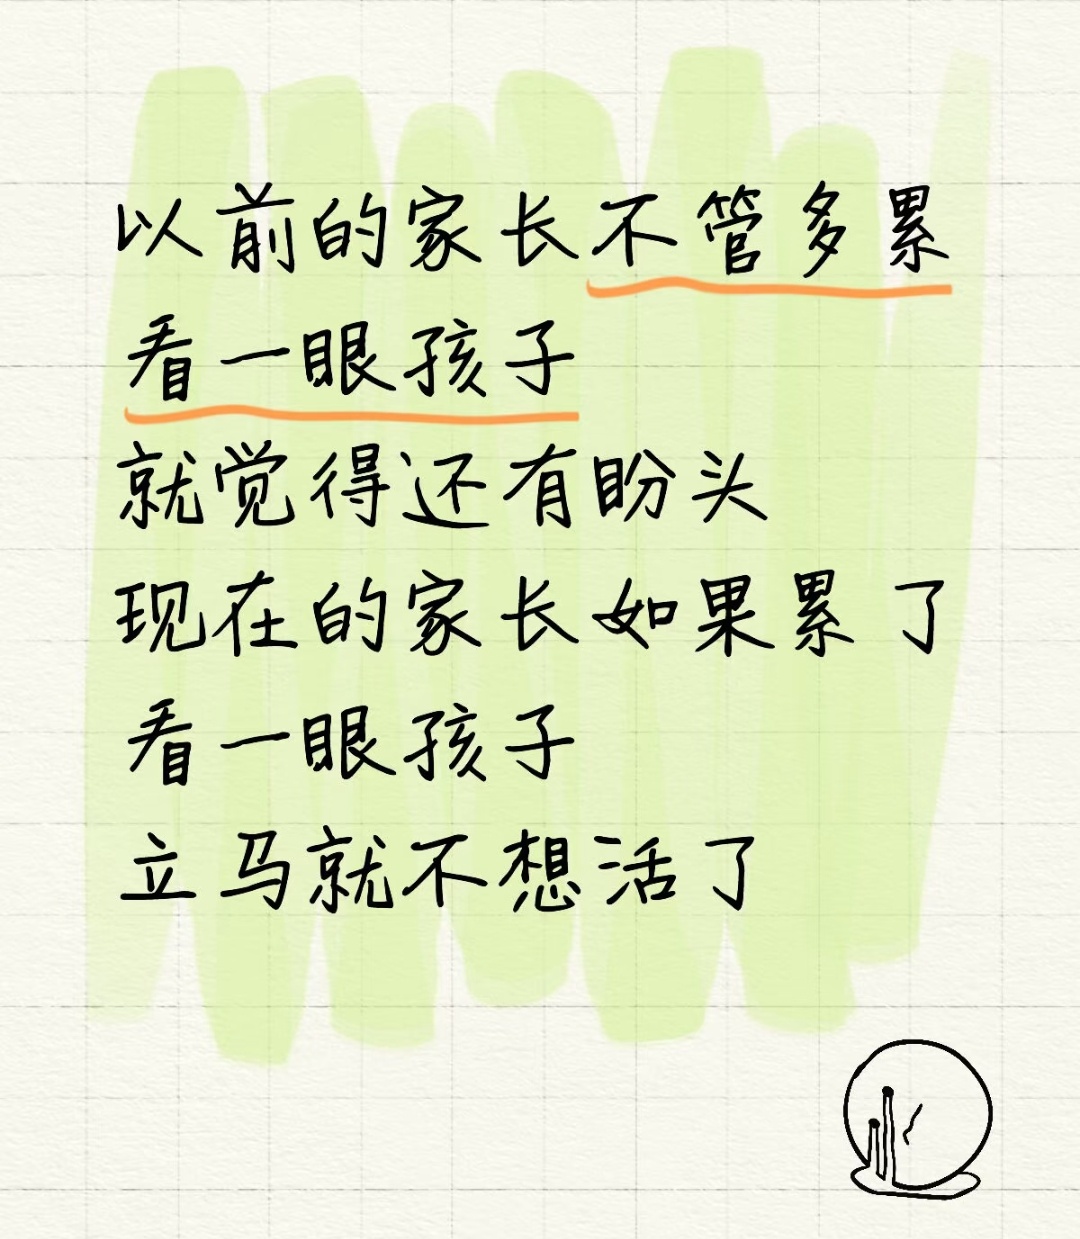 以前的家长不管多累
看一眼孩子
就觉得还有盼头
现在的家长如果累了
看一眼孩子
立马就不想活了